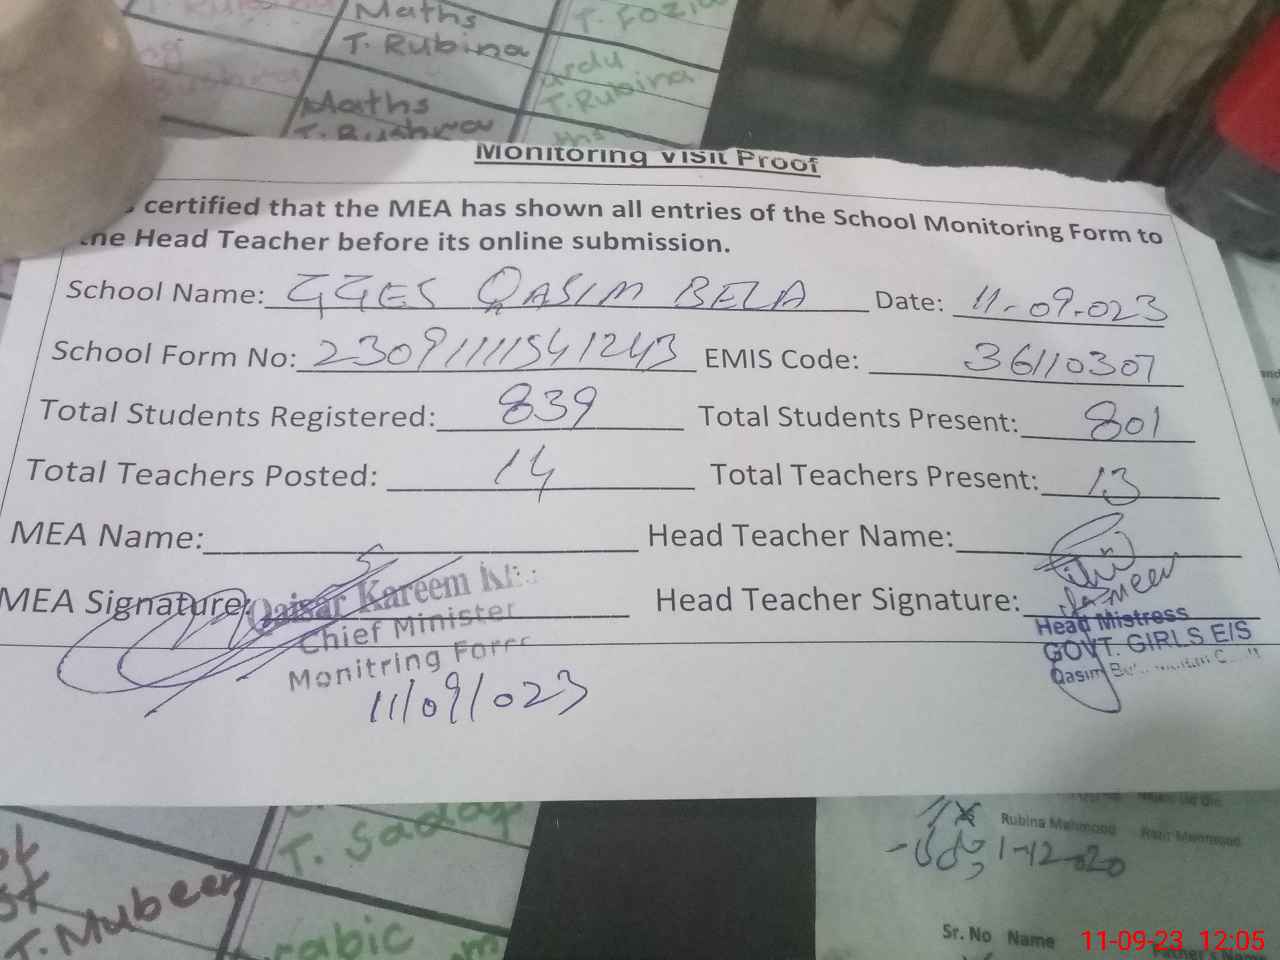 Maths
T. Fozia
T. Rubina
urdu
T. Rubina
Maths
T. Bushra
Monitoring Visit Proof
certified that the MEA has shown all entries of the School Monitoring Form to
the Head Teacher before its online submission.
School Name: GGES QASIM BELA Date: 11-09-023
School Form No: 2309111541243 EMIS Code: 36110307
Total Students Registered: 839 Total Students Present: 801
Total Teachers Posted: 14 Total Teachers Present: 13
MEA Name: Head Teacher Name:
MEA Signature: Head Teacher Signature:
Qaisar Kareem
Chief Minister
Monitring
11/09/023
Head Mistress
GOVT. GIRLS E/S
Qasim
T. Sadaf
T. Mubeen
Rubina Mahmood
1-12-2020
Sr. No Name
11-09-23 12:05